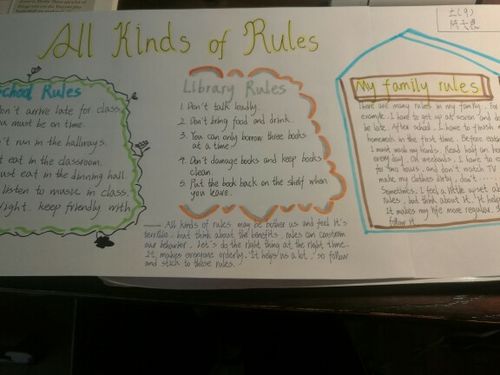 All Kinds of Rules
School Rules
on't arrive late for class
ou must be on time.
n't run in the hallways.
t eat in the classroom.
ust eat in the dinning hall.
listen to music in class.
right. keep friendly with
Library Rules
1. Don't talk loudly.
2. Don't bring food and drink.
3. You can only borrow three books
at a time
4. Don't damage books and keep books
clean.
5. Put the book back on the shelf when
you leave.
My family rules
There are many rules in my family. For
example. I have to get up at seven and
be late. After school. I have to finish
homework in the first time. Before
I must wash my hands. Read
every day. On weekends. I have to
for two hours. and don't watch TV
make my clothes dirty, don't
Sometimes. I feel a little upset
rules, but think about it. It helps
It makes my life more regular.
follow it.
All kinds of rules may be bother us and feel it's
terrible. but think about the benefits. rules can constrain
our behavior. Let's do the right thing at the right time.
It makes everyone orderly. It helps us a lot. so follow
and stick to these rules.